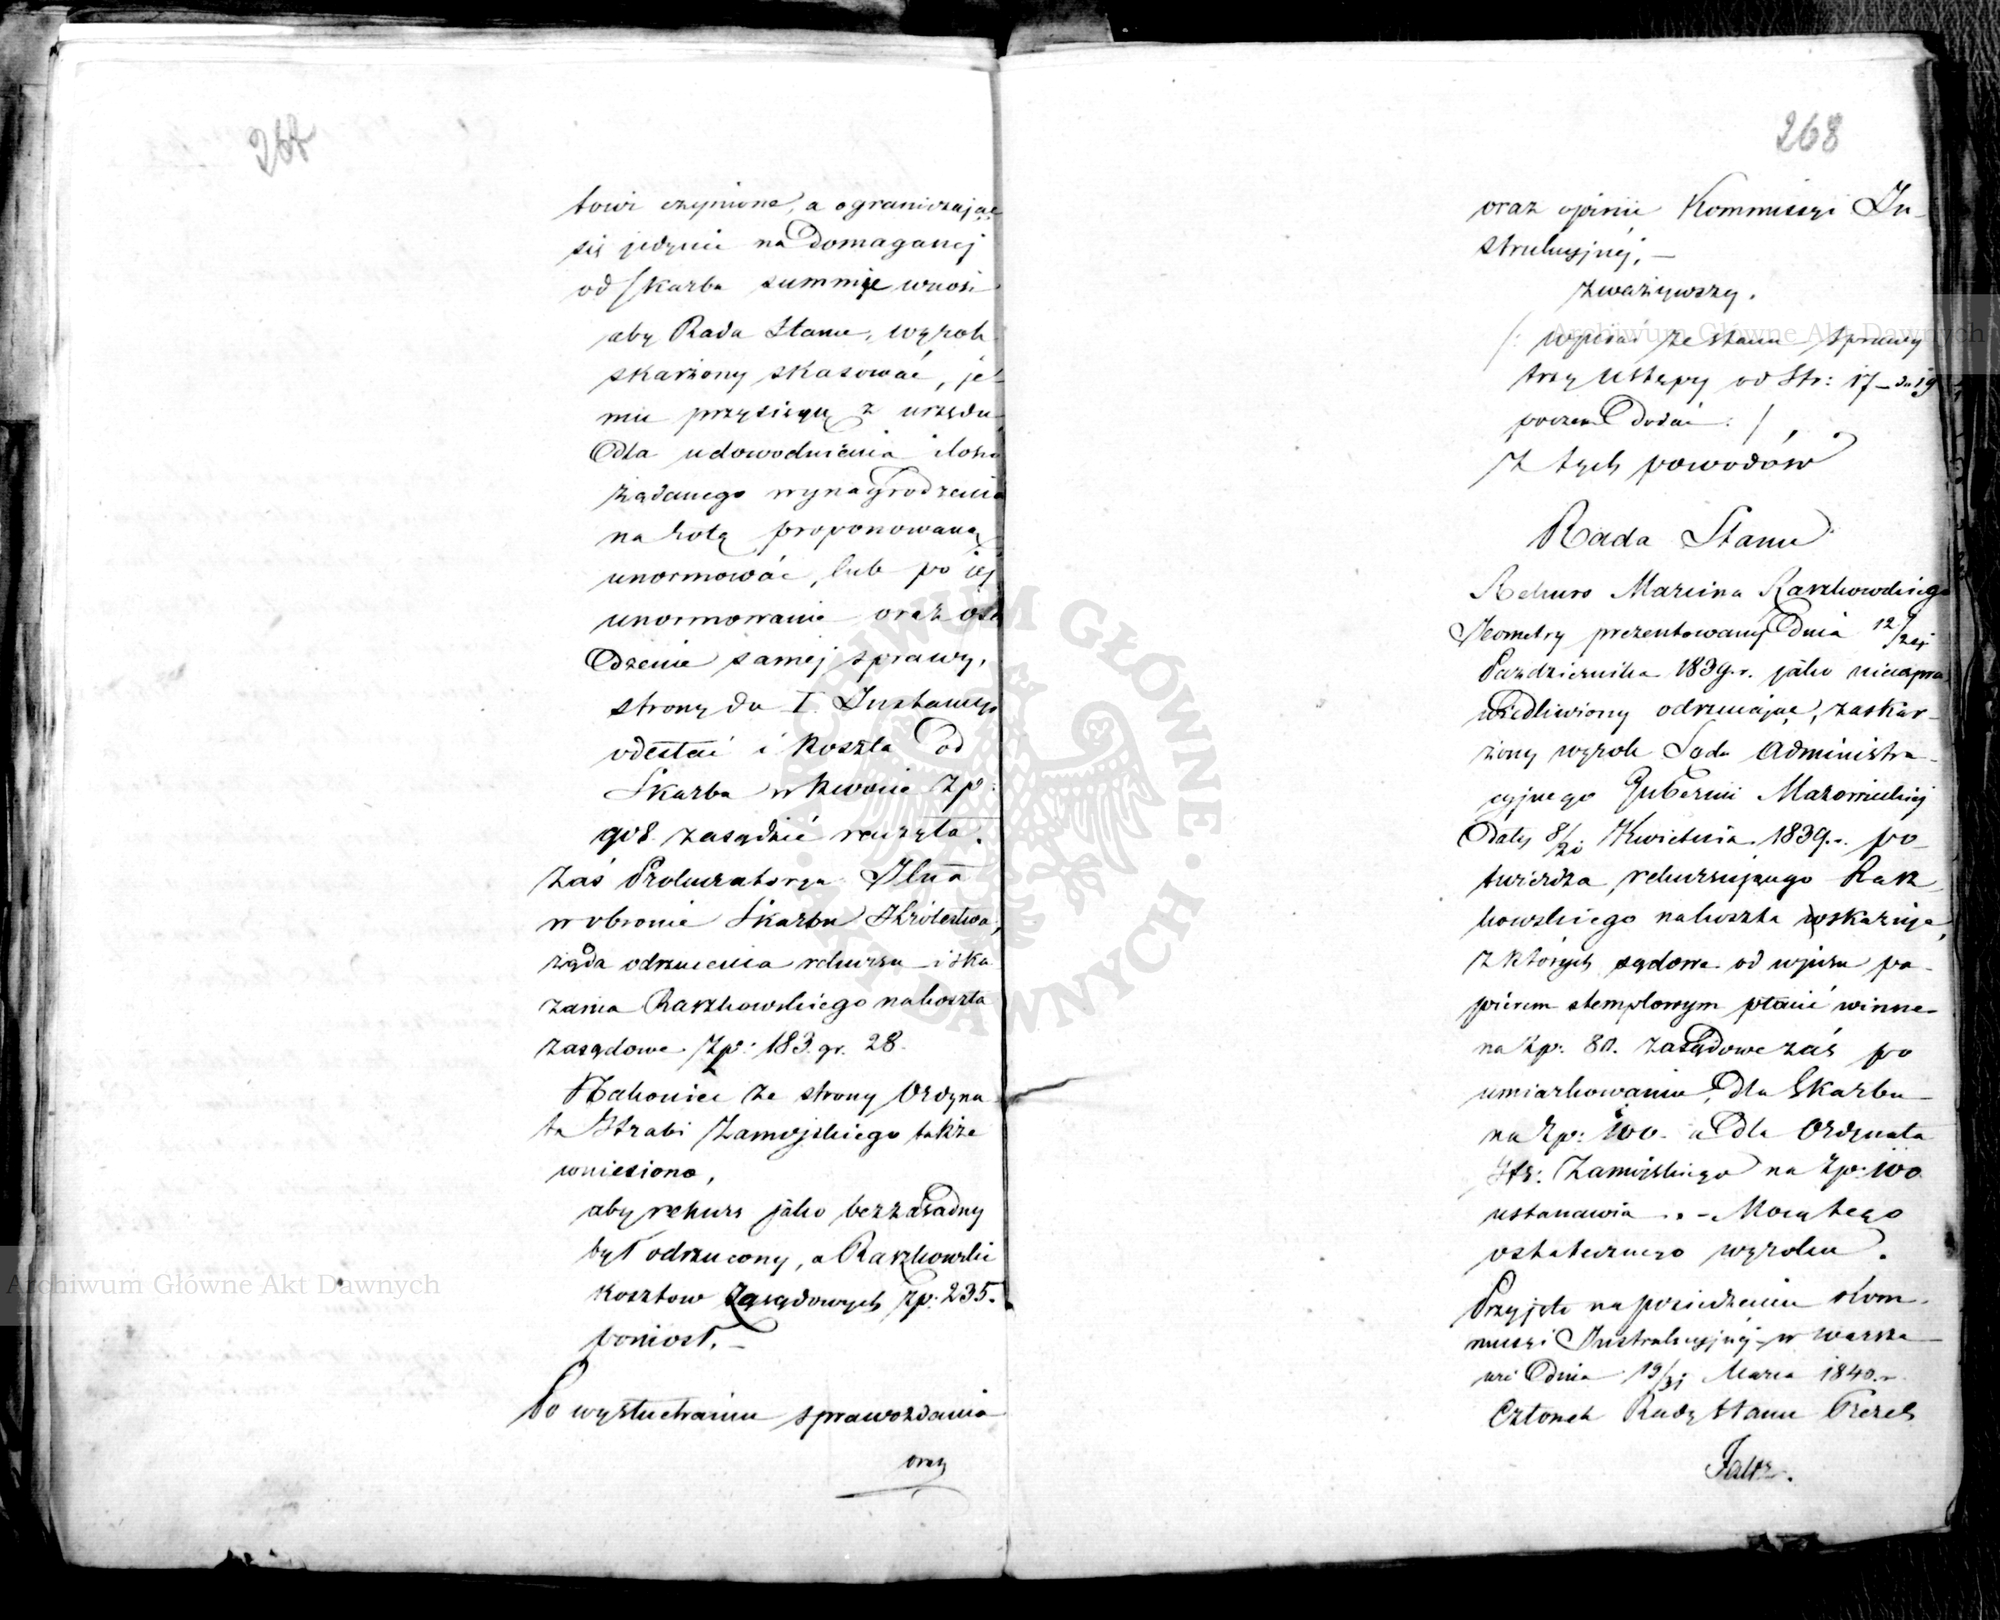 267
towi czynione, a ograniczając
się jedynie na domaganej
od Skarbu summie wnosi
aby Rada Stanu, wyrok
skarżony skasować, je-
mu przysięgę z urzędu
dla udowodnienia ilości
żądanego wynagrodzenia
na rotę proponowaną
unormować, lub po jej
unormowaniu oraz osą
dzenie samej sprawy,
strony do I. Instancyi
odesłać i koszta od
Skarbu w kwocie Zp:
908. zasądzić raczyła.
Zaś Prokuratorya Jlna
w obronie Skarbu Królestwa,
żąda odrzucenia rekursu i ska
zania Raszkowskiego na koszta
zasądowe Zp: 183. gr. 28.
Nakoniec ze strony Ordyna
ta Hrabi Zamojskiego także
wniesiono,
aby rekurs jako bezzasadny
był odrzucony, a Raszkowski
kosztow zasądowych Zp: 235.
poniosł. —
Po wysłuchaniu sprawozdania
oraz
268
oraz opinii Kommissyi In-
strukcyjnéj, —
zważywszy.
/: wpisać ze stanu sprawy
trzy ustępy od Str: 17 – do 19
poczem dodać: /
Z tych powodów
Rada Stanu
Rekurs Marcina Raszkowskiego
Jeometry prezentowany dnia 12/24
Października 1839. r. jako nieuspra
wiedliwiony odrzucając, zaskar-
żony wyrok Sądu Administra-
cyjnego Gubernii Mazowieckiej
daty 8/20 Kwietnia 1839. r. po-
twierdza, rekursującego Rasz
kowskiego na koszta wskazuje,
z których sądowe od wpisu pa-
pierem stemplowym płacić winne
na Zp: 80. zasądowe zaś po
umiarkowaniu, dla Skarbu
na Zp: 100. a dla Ordynata
Hr: Zamojskiego na Zp: 100
ustanawia. – Mocą tego
ostatecznego wyroku.
Przyjęto na posiedzeniu Kom-
missyi Instrukcyjnej w Warsza-
wie dnia 19/31 Marca 1840. r.
Członek Rady Stanu Prezes
Faltz.
Archiwum Główne Akt Dawnych
Archiwum Główne Akt Dawnych
ARCHIWUM GŁÓWNE · AKT DAWNYCH ·